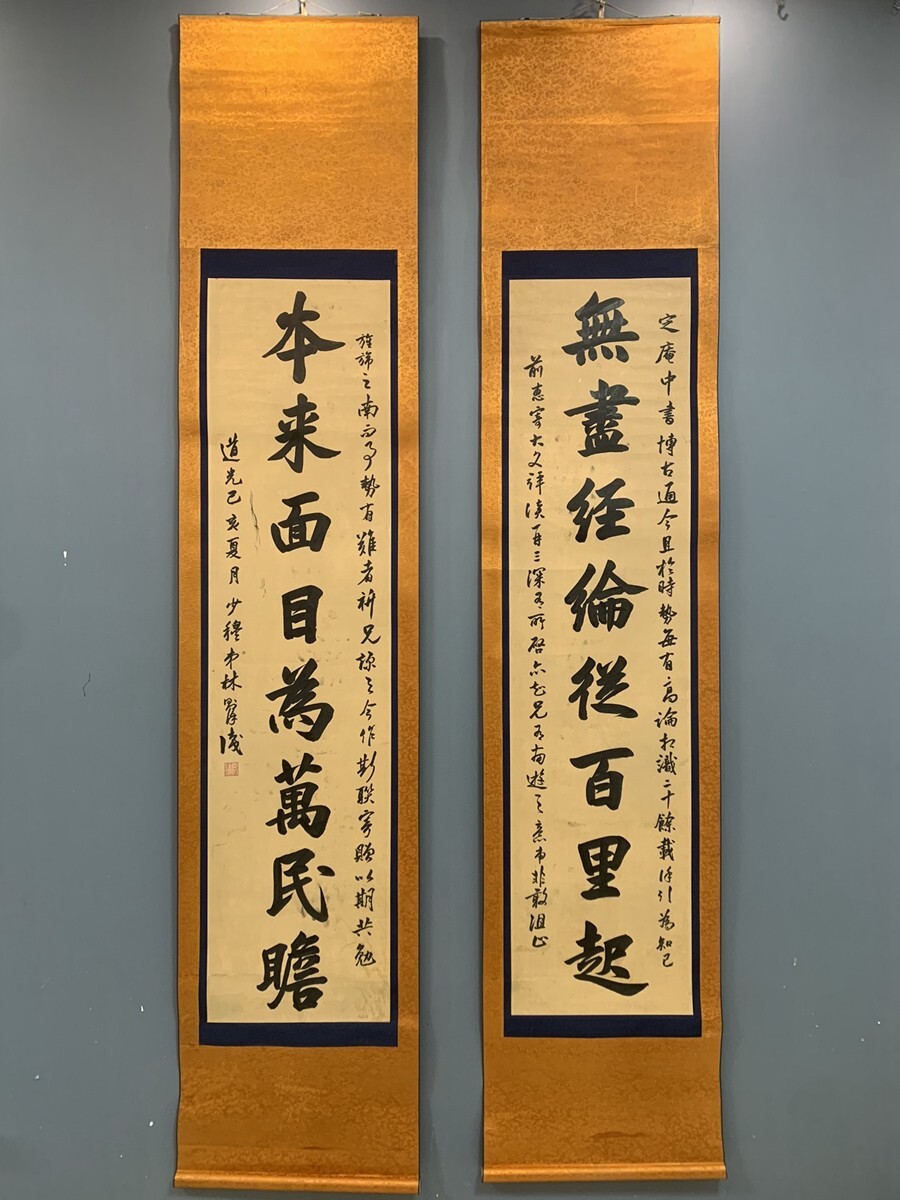 定庵中書博古通今且於時勢每有高論相識二十餘載引為知己
無盡经綸從百里起
前惠寄大文詳讀再三深有所啓亦知兄有南遊之意弟非敢阻止
旌旆之南而事勢有難者祈兄諒之今作斯聯寄贈以期共勉
本来面目為萬民瞻
道光己亥夏月少穆弟林則徐